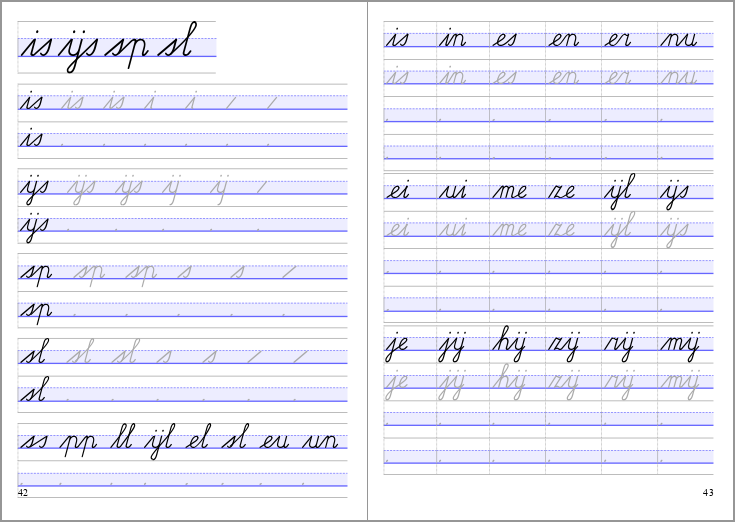 is ijs sp sl
is is is i i
is
ijs ijs ijs ij ij
ijs
sp sp sp s s
sp
sl sl sl s s
sl
ss pp ll ijl el sl eu un
42
is in es en er nu
is in es en er nu
ei ui me ze ijl ijs
ei ui me ze ijl ijs
je jij hij zij rij mij
je jij hij zij rij mij
43